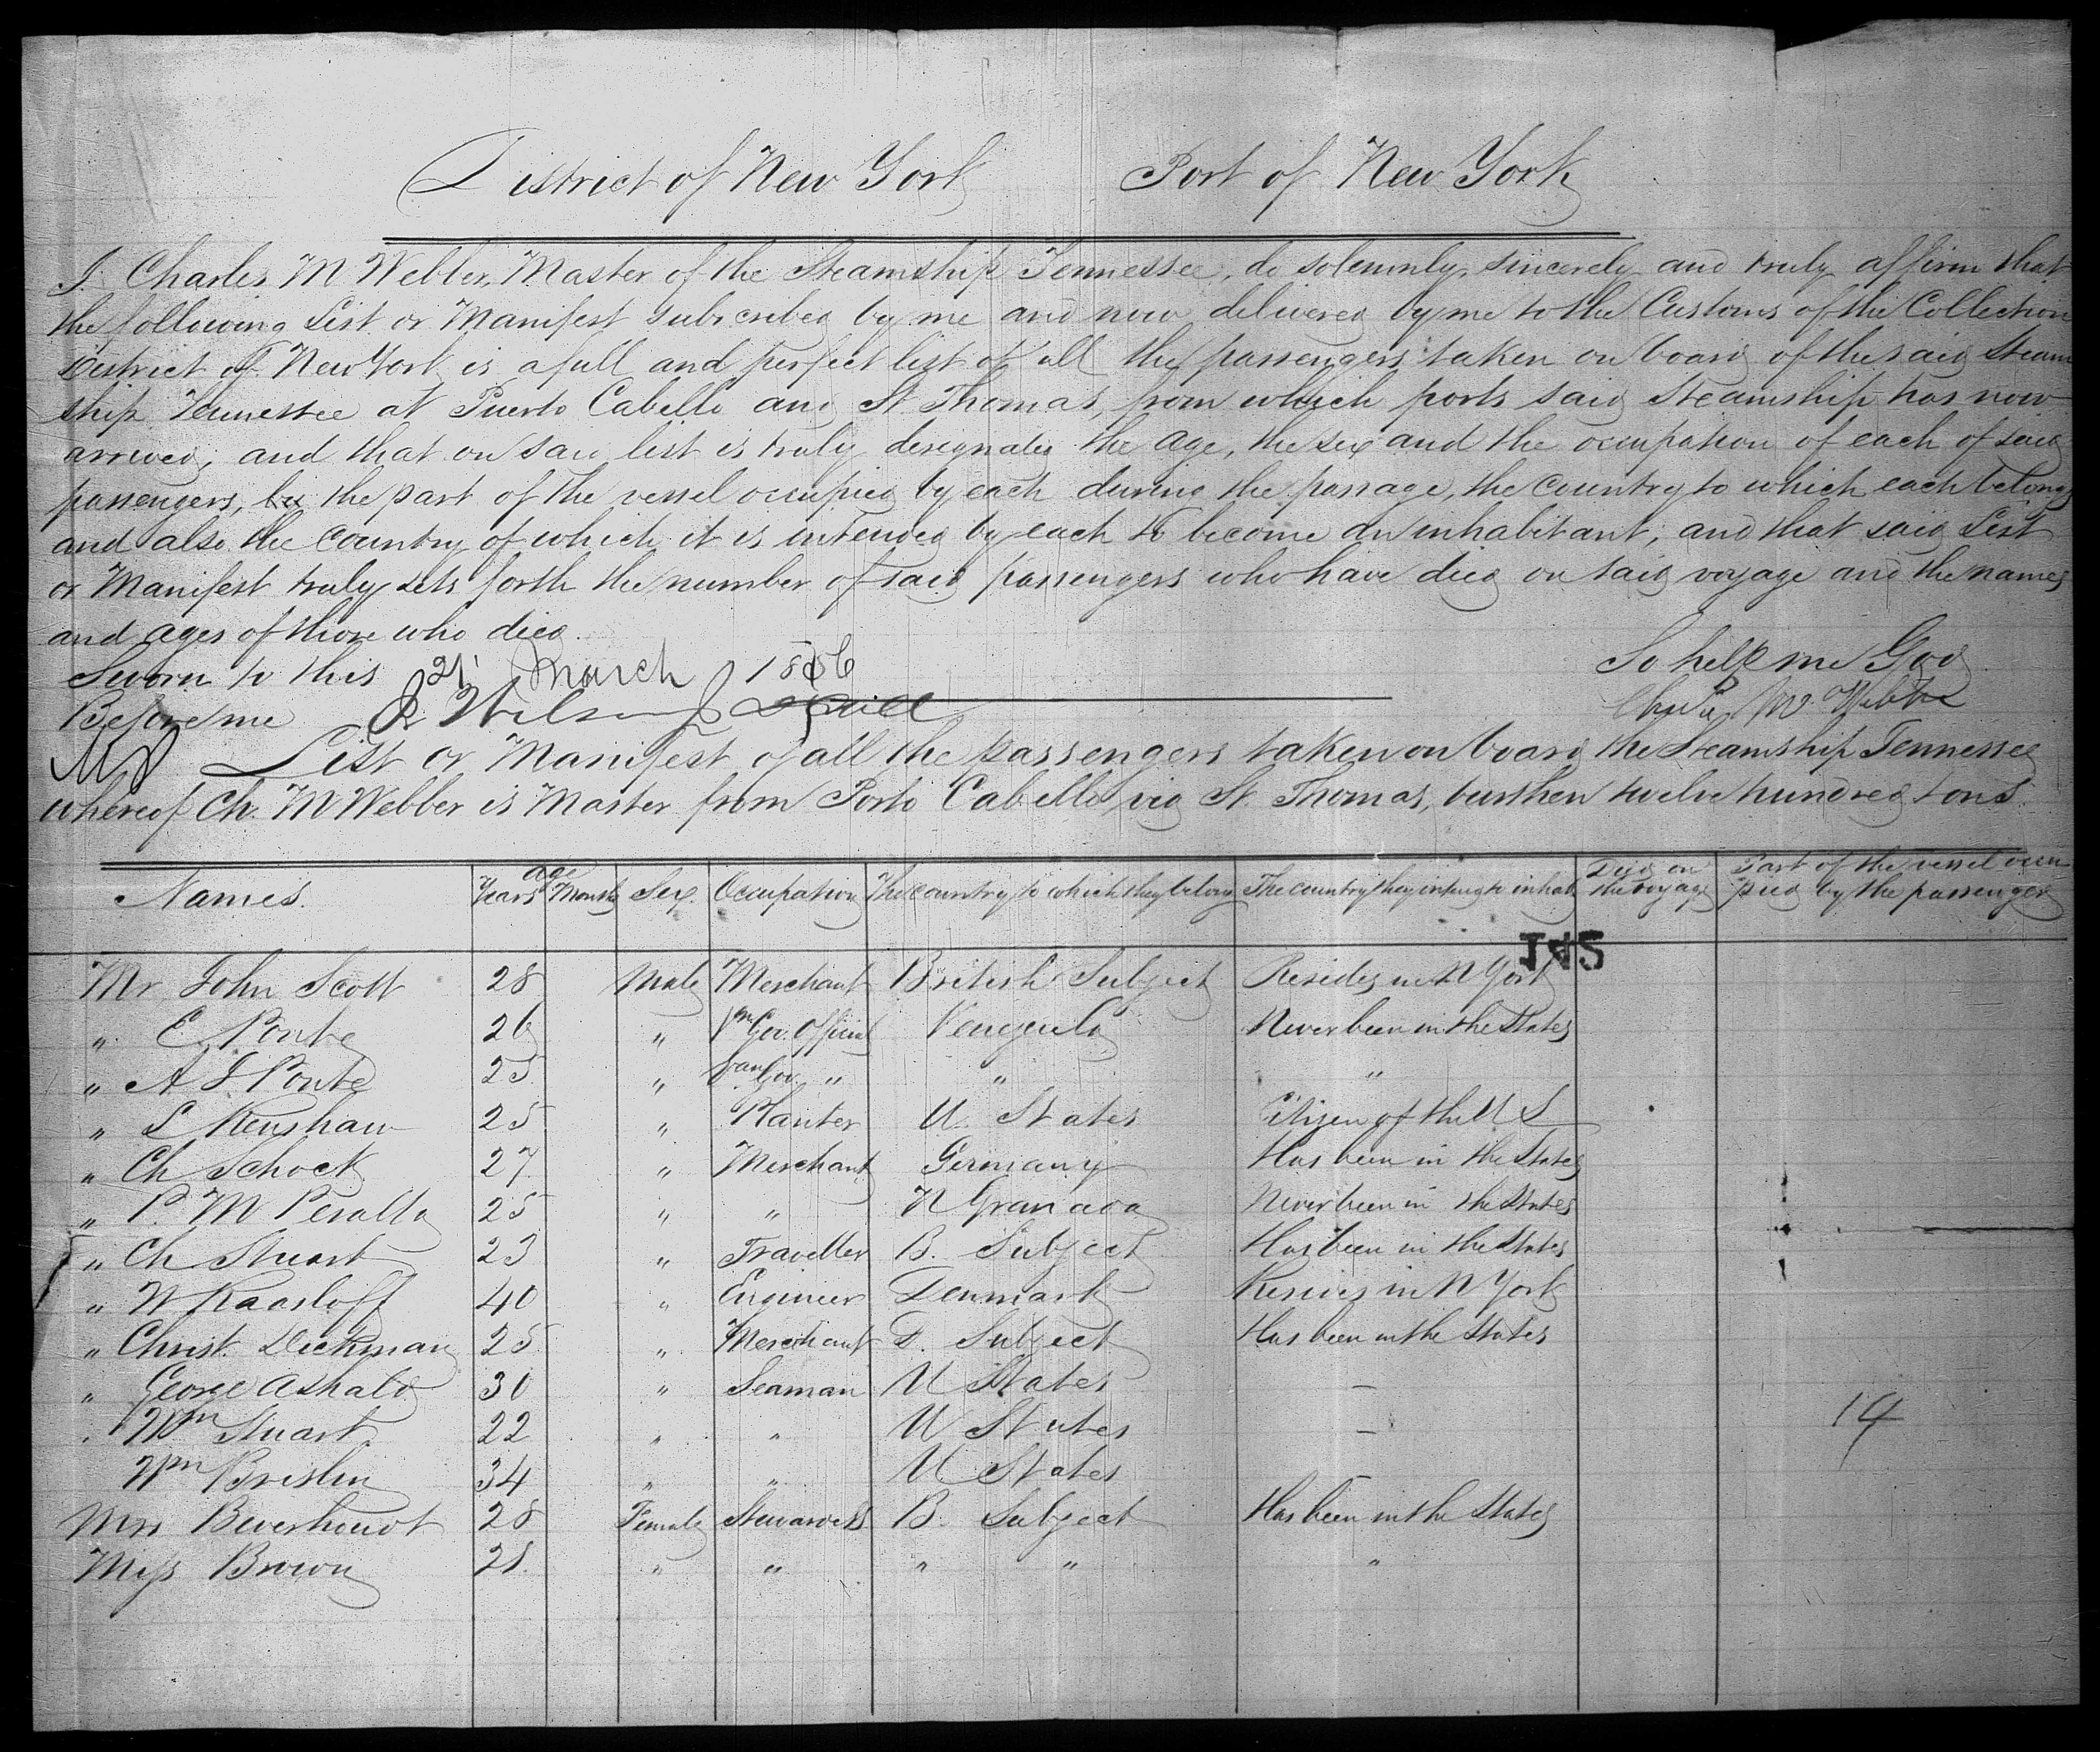 District of New York Port of New York
I. Charles M Webber, Master of the Steamship Tennessee, do solemnly, sincerely and truly affirm that
the following List or Manifest subscribed by me and now delivered by me to the Customs of the Collection
District of New York is a full and perfect list of all the passengers taken on board of the said Steam
ship Tennessee at Puerto Cabello and St Thomas, from which ports said Steamship has now
arrived; and that on said list is truly designated the age, the sex and the occupation of each of said
passengers, the part of the vessel occupied by each during the passage, the country to which each belongs
and also the country of which it is intended by each to become an inhabitant; and that said List
or Manifest truly sets forth the number of said passengers who have died on said voyage and the names
and ages of those who died.
So help me God
Sworn to this 21 March 1856
Chas M. Webber
Before me
List or Manifest of all the passengers taken on board the Steamship Tennessee
whereof Ch. M Webber is Master from Porto Cabello via St. Thomas, burthen twelve hundred tons.
Names. Age Years Months Sex. Occupation The country to which they belong The country they intend to inhabit Died on the voyage Part of the vessel occupied by the passengers
Mr John Scott 28 Male Merchant British Subject Resides in N York
" E Ponte 26 " Gov. Official Venezuela Never been in the States
" A J Ponte 25 " Gov. " " "
" L Renshaw 25 " Planter U. States Citizen of the U S
" Ch Schock 27 " Merchant Germany Has been in the States
" P. M Peralta 25 " " N Granada Never been in the States
" Ch Stuart 23 " Traveller B. Subject Has been in the States
" W Raasloff 40 " Engineer Denmark Resides in N York
" Christ. Dickman 25 " Merchant D. Subject Has been in the States
" George 30 " Seaman U States —
" Wm Stuart 22 " " U States — 14
Wm Brislin 34 " " U States —
Mrs Beverhoudt 28 Female Stewardess B. Subject Has been in the States
Miss Brown 21 " " " " "